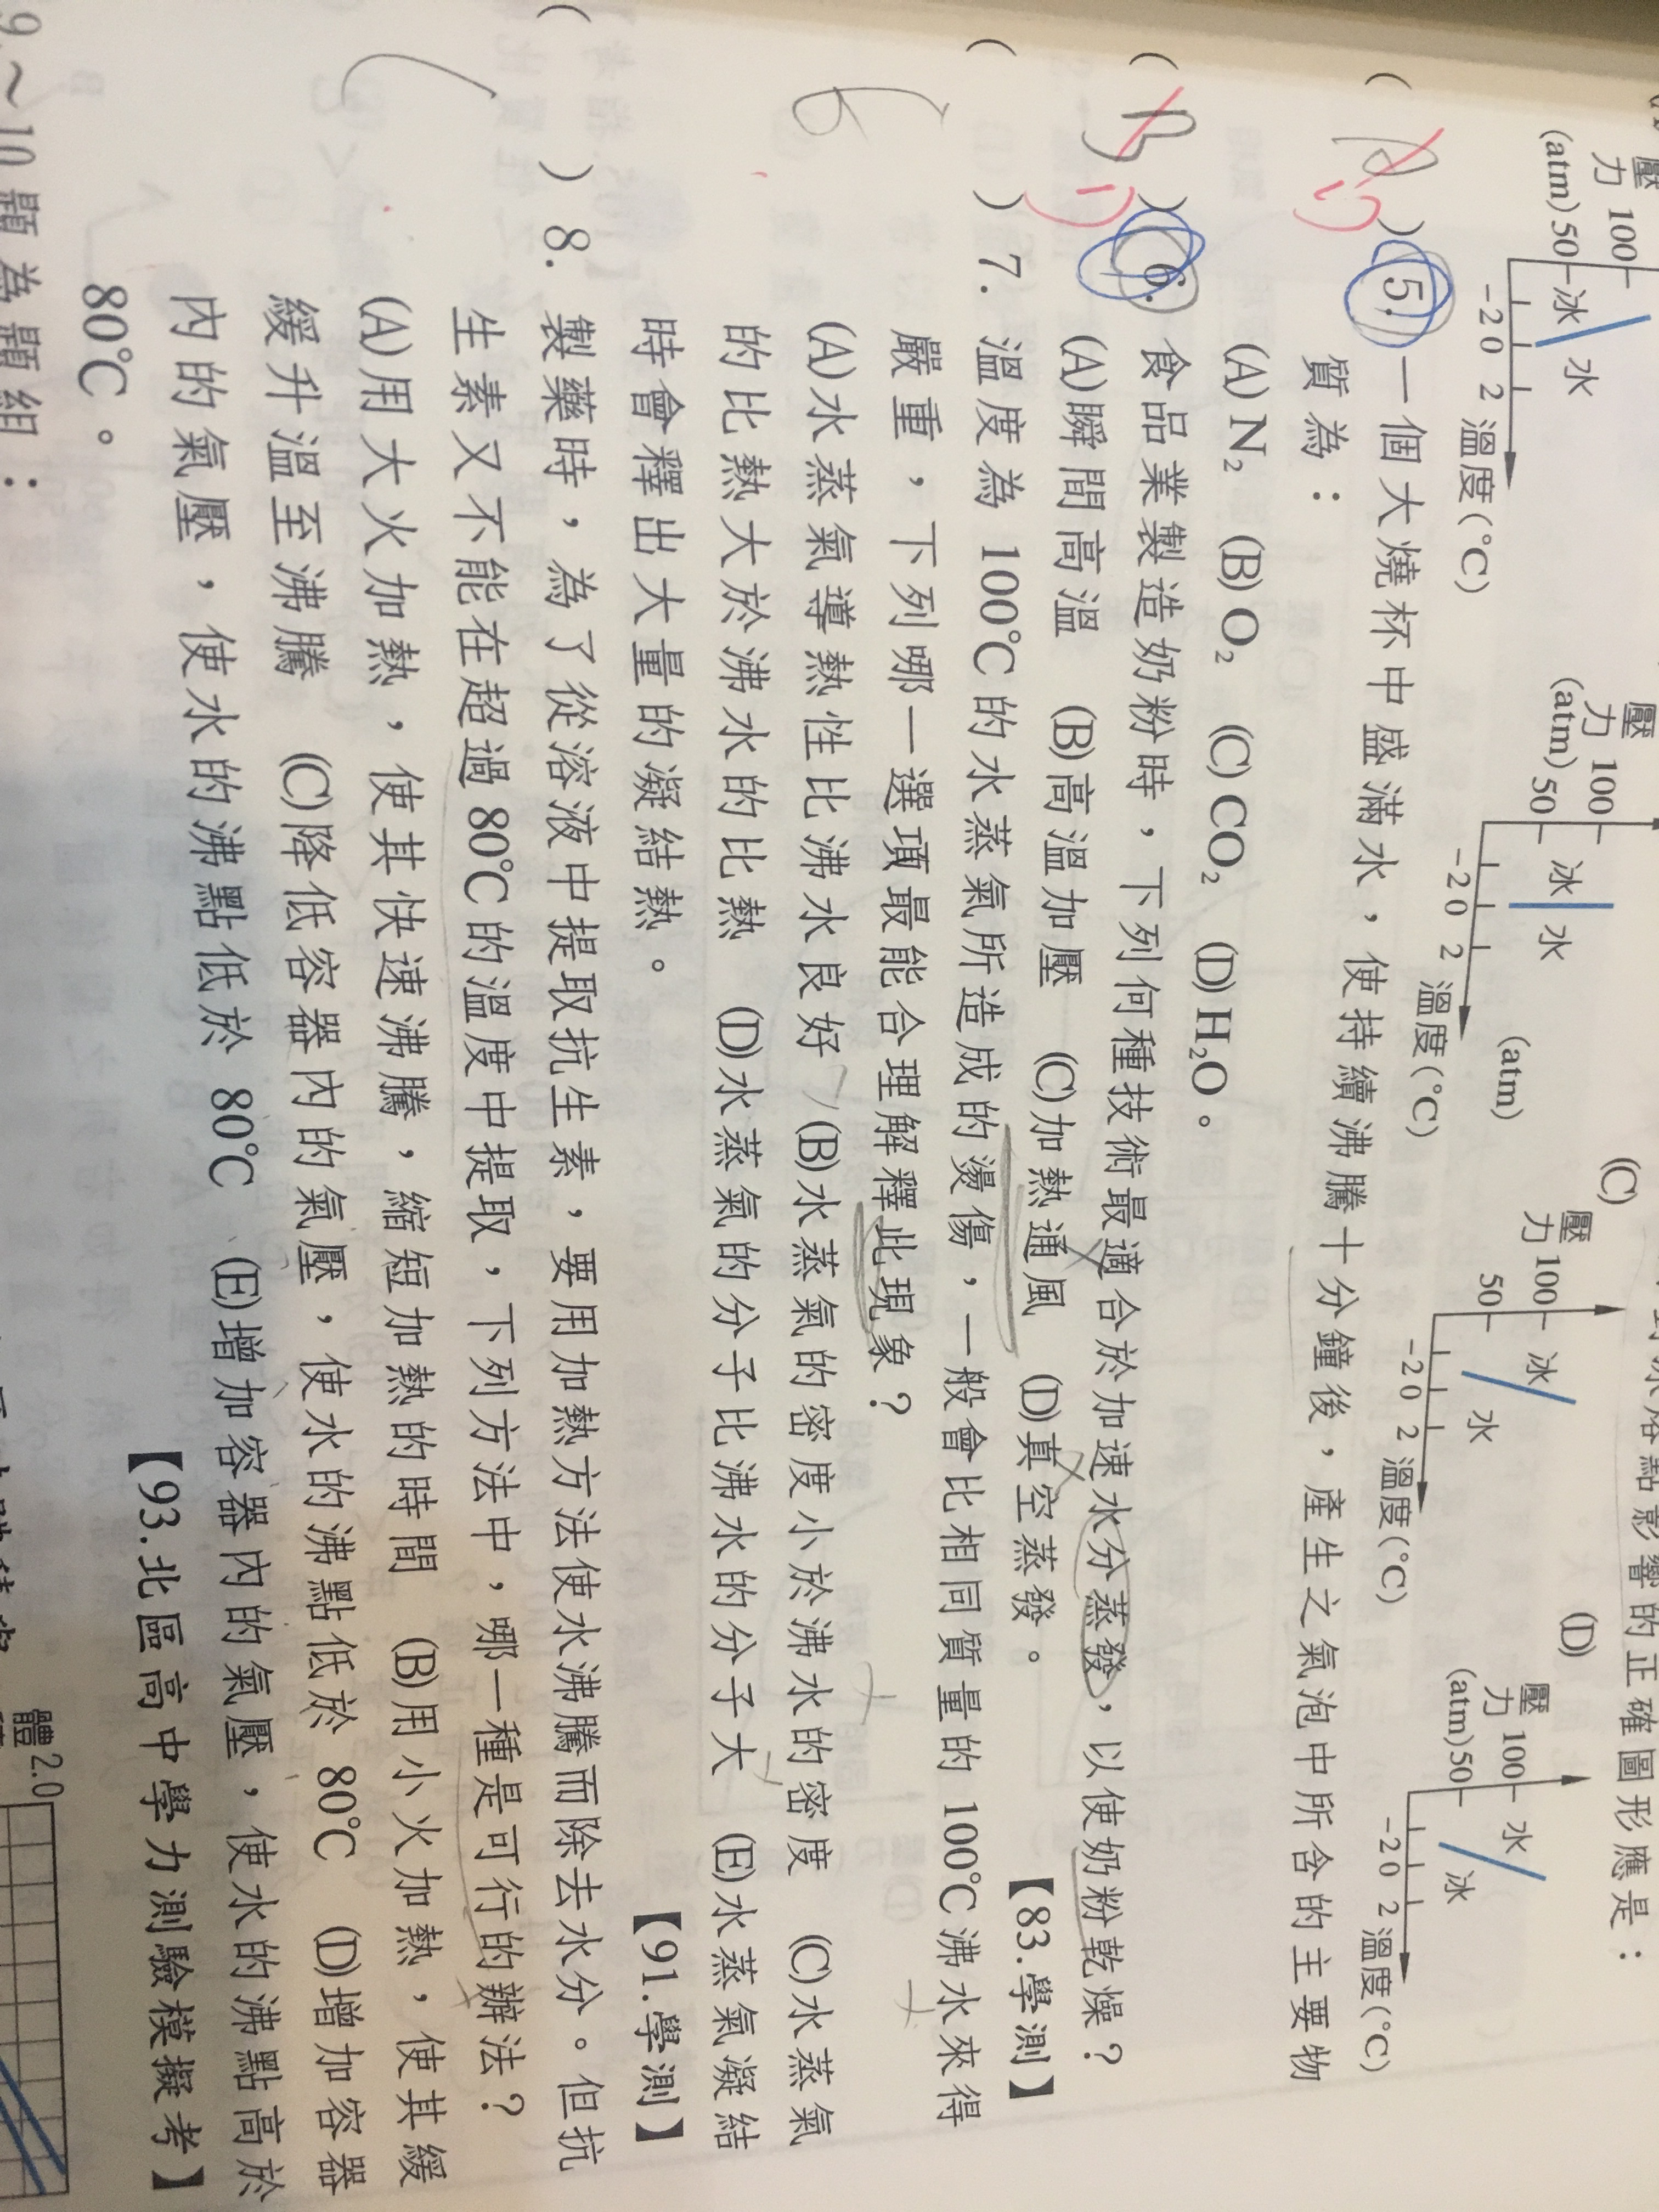 對冰熔點影響的正確圖形應是：
(C)
(D)
壓力
(atm)
100
50
冰
水
-2 0 2 溫度(°C)
壓力
(atm)
100
50
冰
水
-2 0 2 溫度(°C)
(atm)
壓力
100
50
冰
水
-2 0 2 溫度(°C)
壓力
(atm)
100
50
水
冰
-2 0 2 溫度(°C)
( ) 5. 一個大燒杯中盛滿水，使持續沸騰十分鐘後，產生之氣泡中所含的主要物
質為：
(A) N₂ (B) O₂ (C) CO₂ (D) H₂O。
( B ) 6. 食品業製造奶粉時，下列何種技術最適合於加速水分蒸發，以使奶粉乾燥？
(A)瞬間高溫 (B)高溫加壓 (C)加熱通風 (D)真空蒸發。 【83.學測】
( ) 7. 溫度為 100°C的水蒸氣所造成的燙傷，一般會比相同質量的 100°C沸水來得
嚴重，下列哪一選項最能合理解釋此現象？
(A)水蒸氣導熱性比沸水良好 (B)水蒸氣的密度小於沸水的密度 (C)水蒸氣
的比熱大於沸水的比熱 (D)水蒸氣的分子比沸水的分子大 (E)水蒸氣凝結
時會釋出大量的凝結熱。 【91.學測】
( C ) 8. 製藥時，為了從溶液中提取抗生素，要用加熱方法使水沸騰而除去水分。但抗
生素又不能在超過 80°C的溫度中提取，下列方法中，哪一種是可行的辦法？
(A)用大火加熱，使其快速沸騰，縮短加熱的時間 (B)用小火加熱，使其緩
緩升溫至沸騰 (C)降低容器內的氣壓，使水的沸點低於 80°C (D)增加容器
內的氣壓，使水的沸點低於 80°C (E)增加容器內的氣壓，使水的沸點高於
80°C。 【93.北區高中學力測驗模擬考】
9.～10.題為題組：
體
2.0